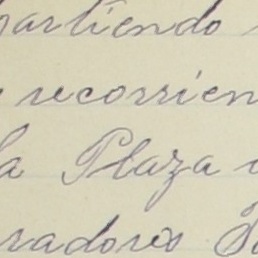 partiendo
recorrien
la Plaza
radores